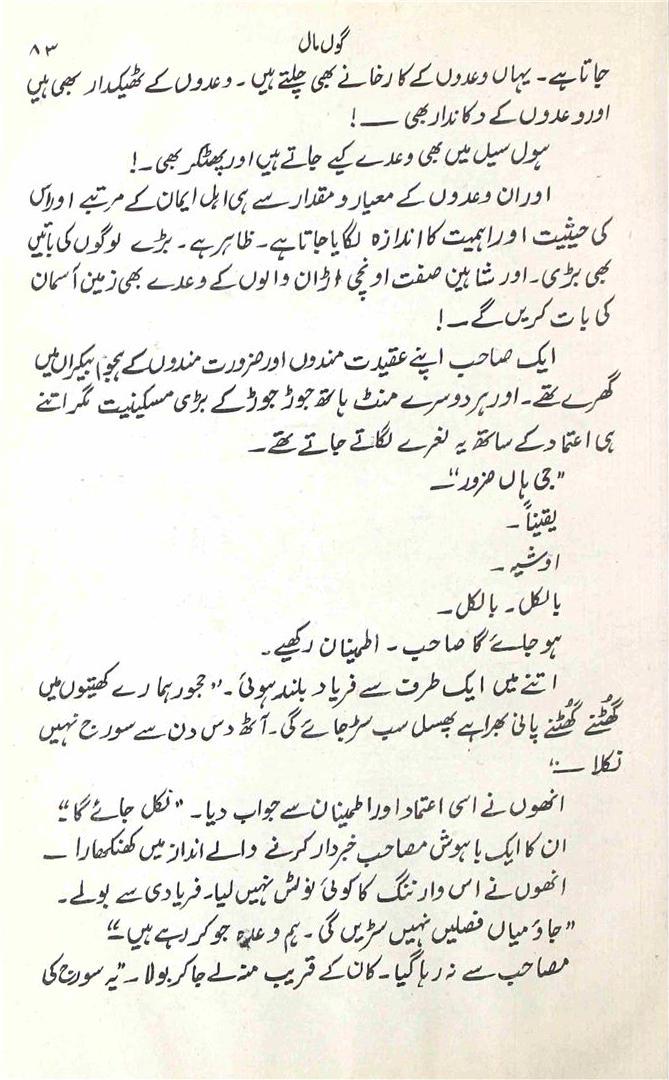 گول مال
۸۳
جاتا ہے۔ یہاں وعدوں کے کارخانے بھی چلتے ہیں۔ وعدوں کے ٹھیکدار بھی ہیں
اور وعدوں کے دکاندار بھی ــــ!
ہول سیل میں بھی وعدے کیے جاتے ہیں اور پھٹکر بھی ـــ!
اور ان وعدوں کے معیار و مقدار سے ہی اہل ایمان کے مرتبے اور اس
کی حیثیت اور اہمیت کا اندازہ لگایا جاتا ہے۔ ظاہر ہے۔ بڑے لوگوں کی باتیں
بھی بڑی۔ اور شاہین صفت اونچی اڑان والوں کے وعدے بھی زمین آسمان
کی بات کریں گے ـــ!
ایک صاحب اپنے عقیدت مندوں اور ضرورت مندوں کے ہجوم بیکراں میں
گھرے تھے۔ اور ہر دوسرے منٹ ہاتھ جوڑ جوڑ کے بڑی مسکینیت مگر اتنے
ہی اعتماد کے ساتھ یہ نعرے لگاتے جاتے تھے۔
"جی ہاں ضرور" ـــ
یقیناً ـ
اوشیہ ـ
بالکل۔ بالکل۔
ہو جائے گا صاحب۔ اطمینان رکھیے۔
اتنے میں ایک طرف سے فریاد بلند ہوئی۔ "حجور ہمارے کھیتوں میں
گھُٹنے گھُٹنے پانی بھرا ہے پھسل سب سڑ جائے گی۔ آٹھ دس دن سے سورج نہیں
نکلا ـــ"
انھوں نے اسی اعتماد اور اطمینان سے جواب دیا۔ "نکل جائے گا۔"
ان کا ایک باہوش مصاحب خبردار کرنے والے انداز میں کھنکھارا ـــ
انھوں نے اس وارننگ کا کوئی نوٹس نہیں لیا۔ فریادی سے بولے۔
"جاؤ میاں فصلیں نہیں سڑیں گی۔ ہم وعدہ جو کر رہے ہیں۔"
مصاحب سے نہ رہا گیا۔ کان کے قریب منہ لے جا کر بولا۔ "یہ سورج کی